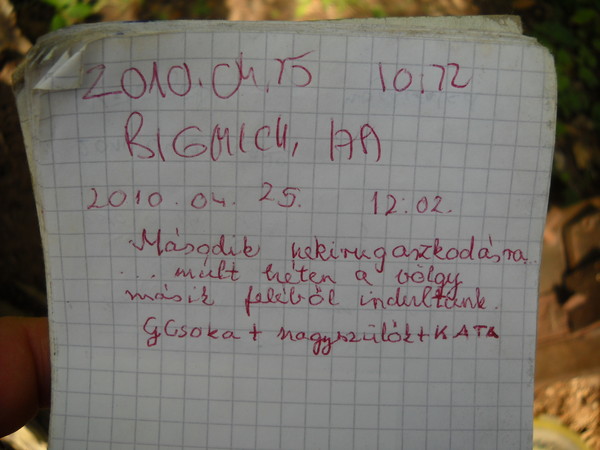 2010.04.25 10.12
BIGMICH,
2010.04. 25. 12:02.
Második nekirugaszkodásra.
... múlt héten a völgy
másik feléből indultunk.
GCsoka + nagyszülők + KATA